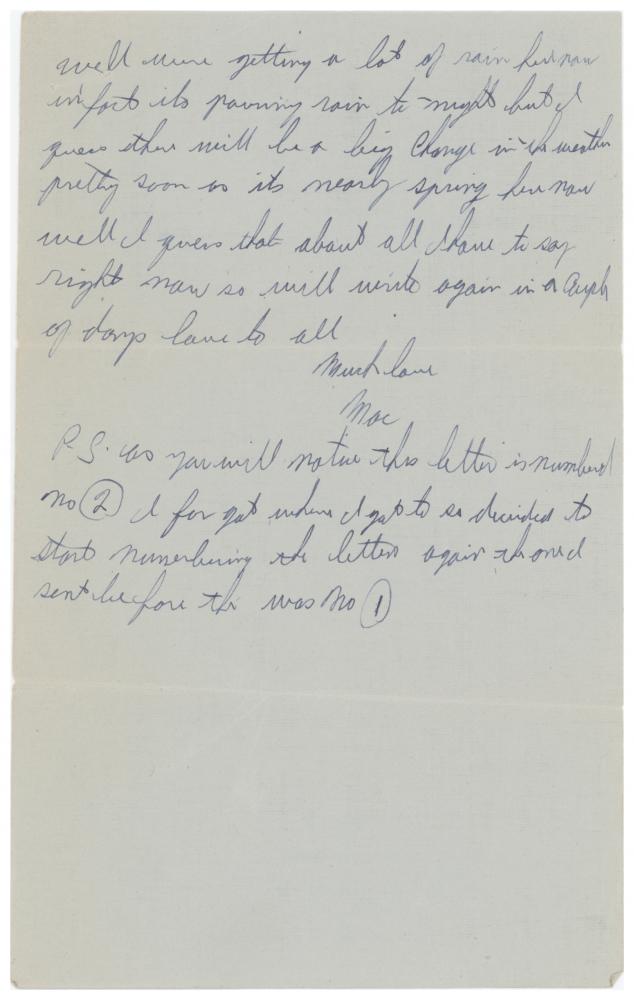 well were getting a lot of rain here now
in fact its pouring rain to-night but I
guess there will be a big change in the weather
pretty soon as its nearly spring here now
well I guess that about all I have to say
right now so will write again in a couple
of days love to all
Much love
Mac
P.S. as you will notice this letter is numbered
no 2 I for got where I got to so decided to
start numerbering the letters again the one I
sent before thi was No 1